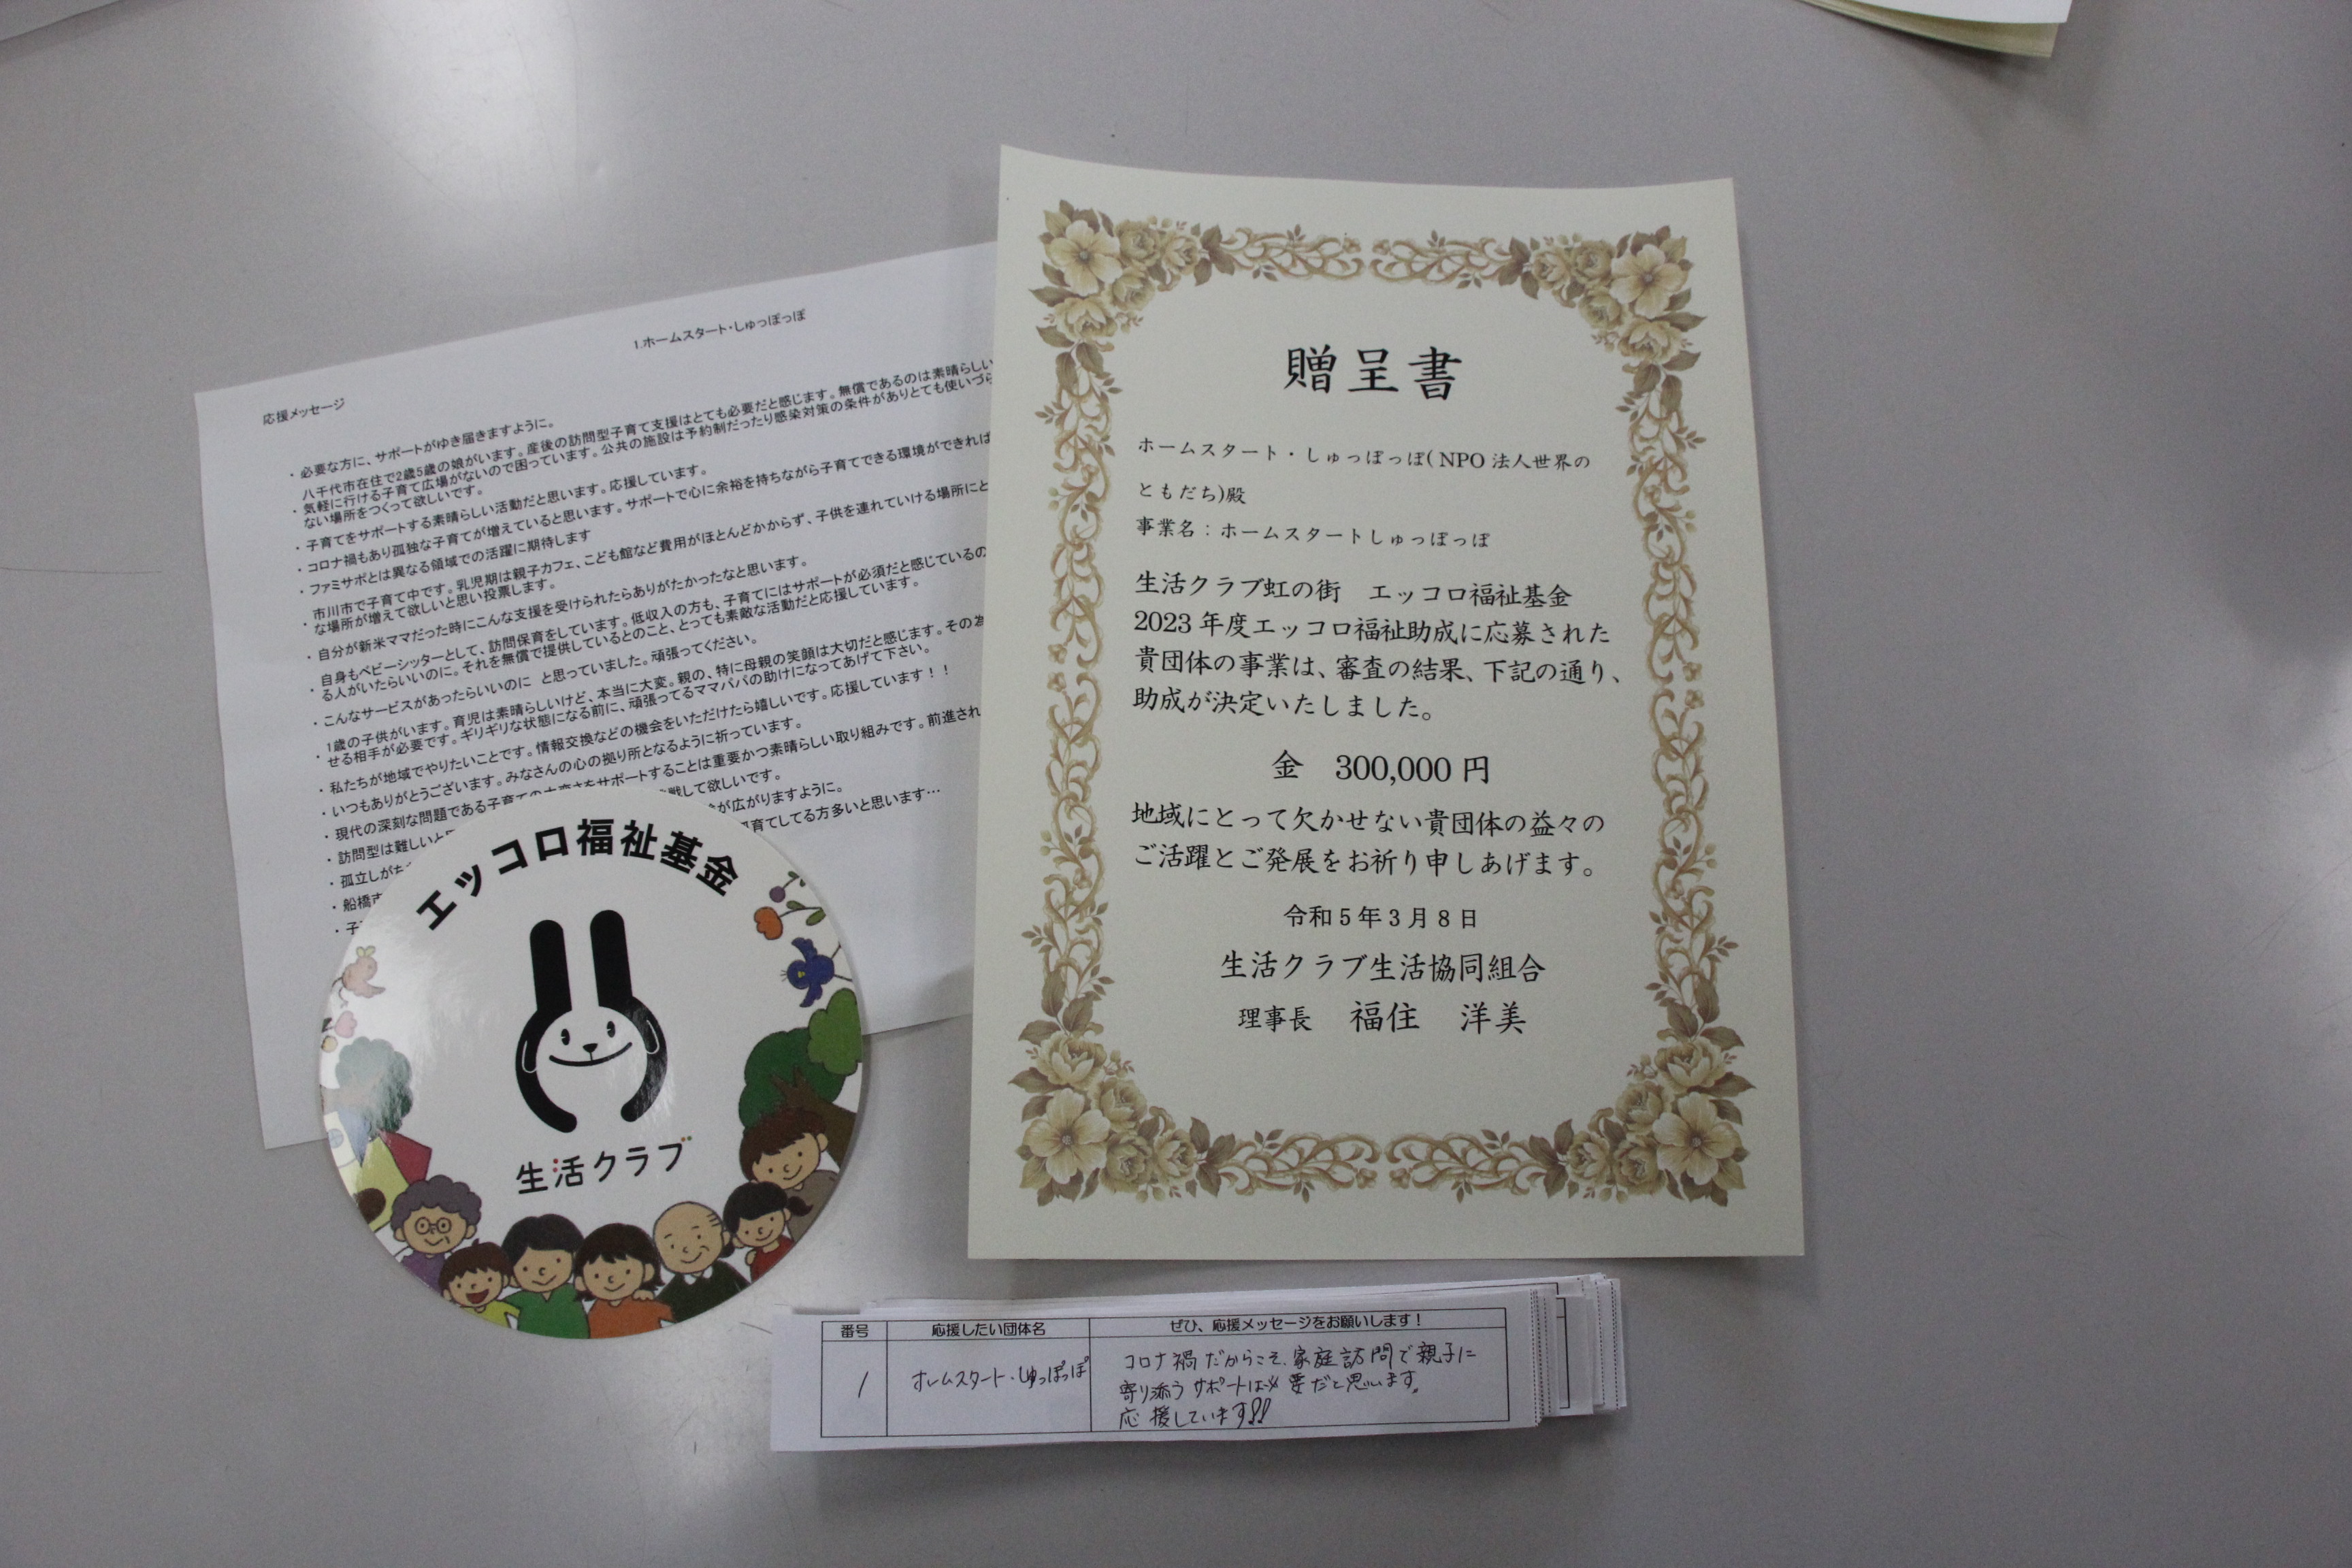 1.ホームスタート・しゅっぽっぽ
応援メッセージ
・必要な方に、サポートがゆき届きますように。
八千代市在住で2歳5歳の娘がいます。産後の訪問型子育て支援はとても必要だと感じます。無償であるのは素晴らしい
・気軽に行ける子育て広場がないので困っています。公共の施設は予約制だったり感染対策の条件がありとても使いづら
ない場所をつくって欲しいです。
・子育てをサポートする素晴らしい活動だと思います。応援しています。
・コロナ禍もあり孤独な子育てが増えていると思います。サポートで心に余裕を持ちながら子育てできる環境ができれば
・ファミサポとは異なる領域での活躍に期待します
市川市で子育て中です。乳児期は親子カフェ、こども館など費用がほとんどかからず、子供を連れていける場所にと
・な場所が増えて欲しいと思い投票します。
・自分が新米ママだった時にこんな支援を受けられたらありがたかったなと思います。
自身もベビーシッターとして、訪問保育をしています。低収入の方も、子育てにはサポートが必須だと感じているの
・る人がいたらいいのに。それを無償で提供しているとのこと、とっても素敵な活動だと応援しています。
・こんなサービスがあったらいいのに と思っていました。頑張ってください。
1歳の子供がいます。育児は素晴らしいけど、本当に大変。親の、特に母親の笑顔は大切だと感じます。その為
・せる相手が必要です。ギリギリな状態になる前に、頑張ってるママパパの助けになってあげて下さい。
・私たちが地域でやりたいことです。情報交換などの機会をいただけたら嬉しいです。応援しています！！
・いつもありがとうございます。みなさんの心の拠り所となるように祈っています。
・現代の深刻な問題である子育ての大変さをサポートすることは重要かつ素晴らしい取り組みです。前進され
・訪問型は難しいと 戦して欲しいです。
・孤立しがち が広がりますように。
・船橋市 育てしてる方多いと思います…
・子
エッコロ福祉基金
生活クラブ
贈呈書
ホームスタート・しゅっぽっぽ(NPO法人世界の
ともだち)殿
事業名：ホームスタートしゅっぽっぽ
生活クラブ虹の街　エッコロ福祉基金
2023年度エッコロ福祉助成に応募された
貴団体の事業は、審査の結果、下記の通り、
助成が決定いたしました。
金　300,000円
地域にとって欠かせない貴団体の益々の
ご活躍とご発展をお祈り申しあげます。
令和5年3月8日
生活クラブ生活協同組合
理事長　福住　洋美
番号 応援したい団体名 ぜひ、応援メッセージをお願いします！
1 ホームスタート・しゅっぽっぽ コロナ禍だからこそ、家庭訪問で親子に
寄り添うサポートは必要だと思います。
応援しています!!